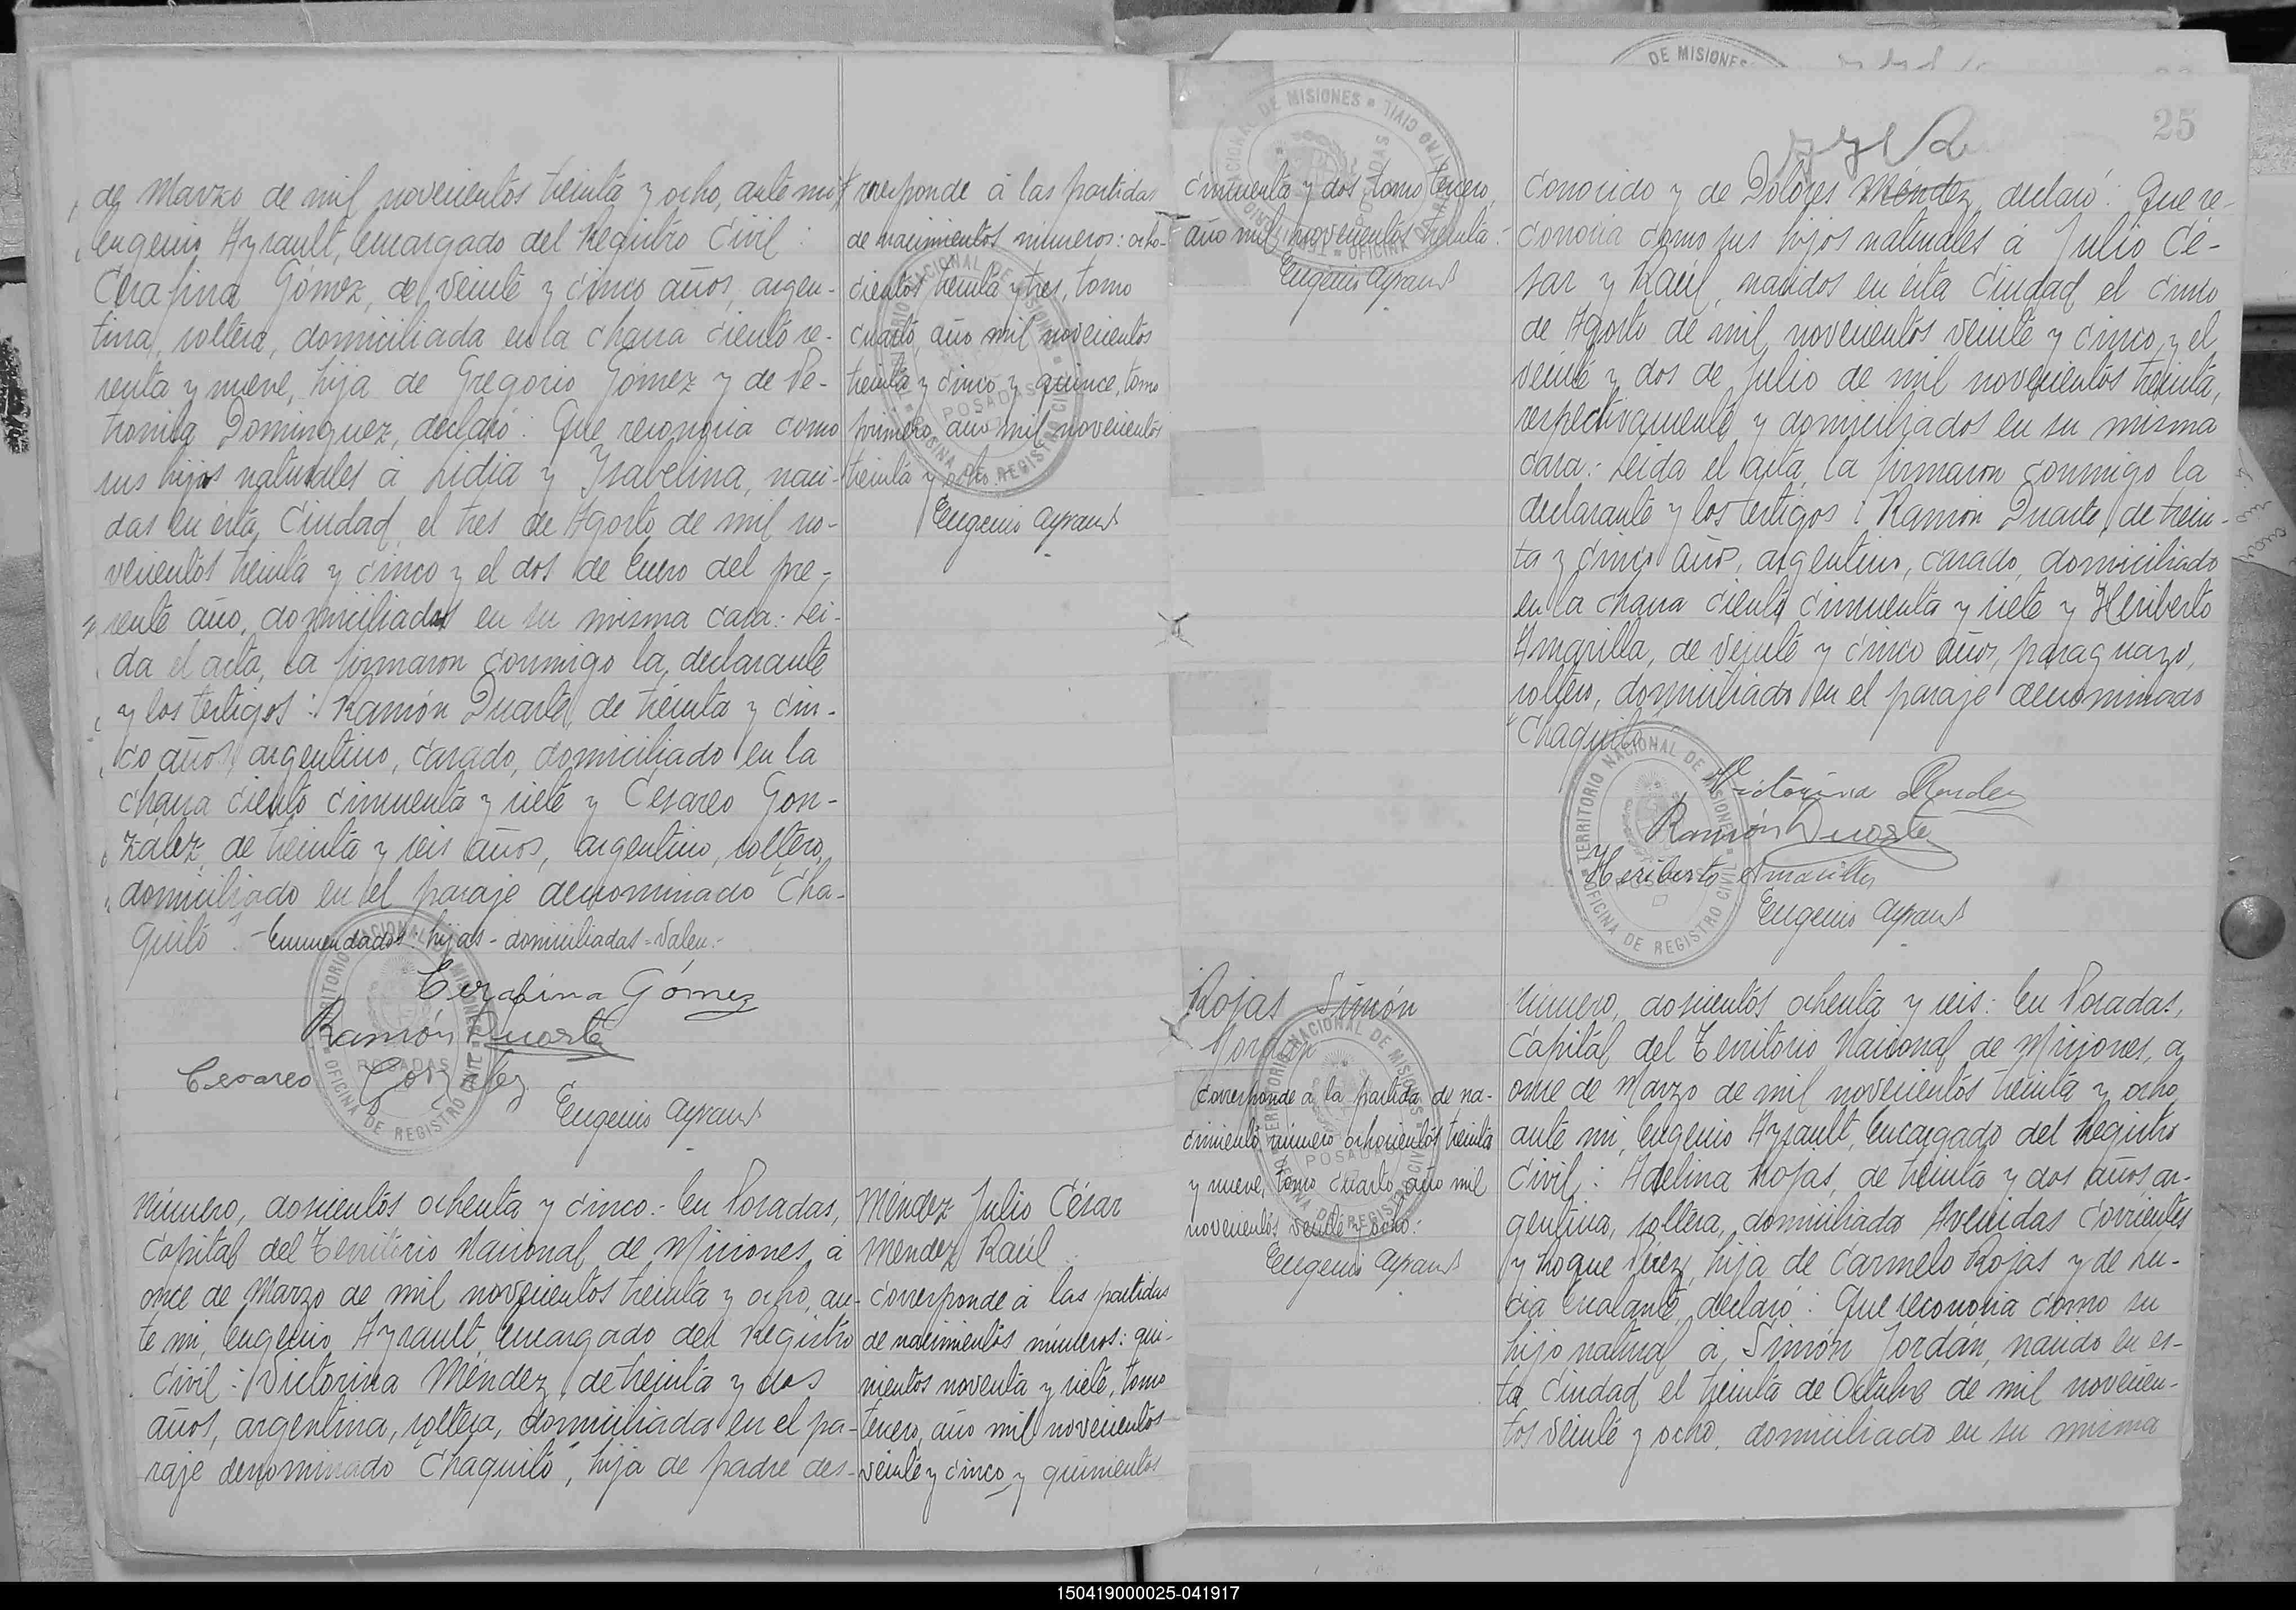 de Marzo de mil novecientos treinta y ocho, ante mi,
Eugenio Ayrault, Encargado del Registro Civil:
Cerafina Gómez, de veinte y cinco años, argen-
tina, soltera, domiciliada en la chacra ciento se-
senta y nueve, hija de Gregorio Gomez y de Pe-
tronila Dominguez, declaró: Que reconocia como
sus hijas naturales á Lidia y Isabelina, naci-
das en esta Ciudad el tres de Agosto de mil no-
vecientos treinta y cinco y el dos de Enero del pre-
sente año, domiciliadas en su misma casa: Lei-
da el acta, la firmaron conmigo la declarante
y los testigos: Ramón Duarte, de treinta y cin-
co años, argentino, casado, domiciliado en la
chacra ciento cincuenta y siete y Cesareo Gon-
zález, de treinta y seis años, argentino, soltero,
domiciliado en el paraje denominado "Cha-
quito". - Enmendados: hijas - domiciliadas = Valen.-
Cerafina Gómez
Ramón Duarte
Cesareo González
Eugenio Ayrault
TERRITORIO NACIONAL DE MISIONES
POSADAS
OFICINA DE REGISTRO CIVIL
Número, doscientos ochenta y cinco:- En Posadas,
Capital del Territorio Nacional de Misiones, á
once de Marzo de mil novecientos treinta y ocho, an-
te mi, Eugenio Ayrault, Encargado del Registro
Civil: Victorina Méndez, de treinta y dos
años, argentina, soltera, domiciliada en el pa-
raje denominado "Chaquito", hija de padre des-
rresponde á las partidas
de nacimientos números: ocho-
cientos treinta y tres, tomo
cuarto, año mil novecientos
treinta y cinco y quince, tomo
primero, año mil novecientos
treinta y ocho.
Eugenio Ayrault
TERRITORIO NACIONAL DE MISIONES
POSADAS
OFICINA DE REGISTRO CIVIL
Méndez Julio César
Méndez Raúl
Corresponde á las partidas
de nacimientos números: qui-
nientos noventa y siete, tomo
tercero, año mil novecientos
veinte y cinco y quinientos
cincuenta y dos, tomo tercero,
año mil novecientos treinta:-
Eugenio Ayrault
TERRITORIO NACIONAL DE MISIONES
POSADAS
OFICINA DE REGISTRO CIVIL
Rojas Simón
Jordán
Corresponde á la partida de na-
cimiento número ochocientos treinta
y nueve, tomo cuarto, año mil
novecientos veinte y ocho:-
Eugenio Ayrault
TERRITORIO NACIONAL DE MISIONES
POSADAS
OFICINA DE REGISTRO CIVIL
DE MISIONES
25
conocido y de Dolores Méndez, declaró: Que re-
conocia como sus hijos naturales á Julio Cé-
sar y Raúl, nacidos en esta Ciudad el cinco
de Agosto de mil novecientos veinte y cinco y el
veinte y dos de Julio de mil novecientos treinta,
respectivamente y domiciliados en su misma
casa:- Leida el acta, la firmaron conmigo la
declarante y los testigos: Ramón Duarte, de trein-
ta y cinco años, argentino, casado, domiciliado
en la chacra ciento cincuenta y siete y Heriberto
Amarilla, de veinte y cinco años, paraguayo,
soltero, domiciliado en el paraje denominado
"Chaquito".
Victorina Mendez
Ramón Duarte
Heriberto Amarilla
Eugenio Ayrault
TERRITORIO NACIONAL DE MISIONES
OFICINA DE REGISTRO CIVIL
Número, doscientos ochenta y seis:- En Posadas,
Capital del Territorio Nacional de Misiones, a
once de Marzo de mil novecientos treinta y ocho,
ante mi, Eugenio Ayrault, Encargado del Registro
Civil: Adelina Rojas, de treinta y dos años ar-
gentina, soltera, domiciliada Avenidas Corrientes
y Roque Perez, hija de Carmelo Rojas y de Lu-
cia declaró: Que reconocia como su
hijo natural á Simón Jordán, nacido en es-
ta Ciudad el treinta de Octubre de mil novecien-
tos veinte y ocho, domiciliado en su misma
150419000025-041917